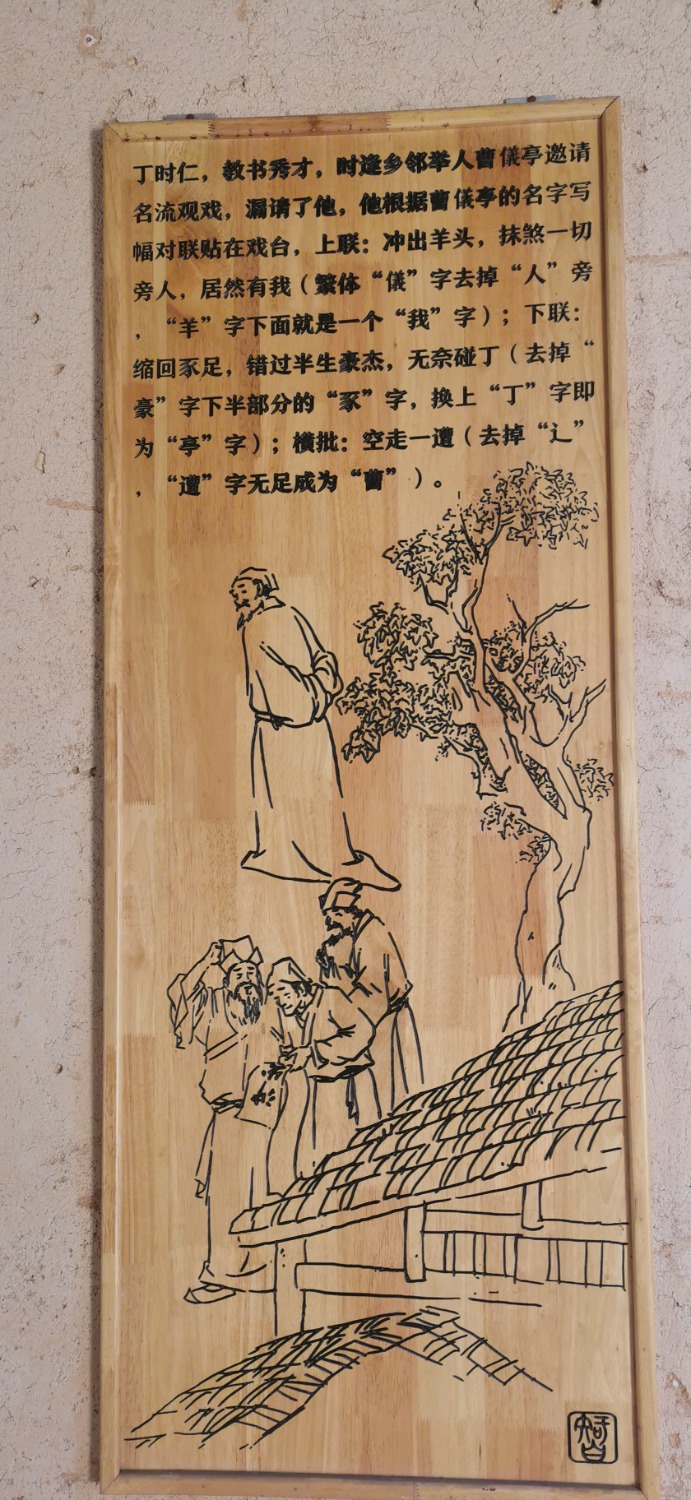 丁时仁，教书秀才，时逢乡邻举人曹儀亭邀请
名流观戏，漏请了他，他根据曹儀亭的名字写
幅对联贴在戏台，上联：冲出羊头，抹煞一切
旁人，居然有我（繁体“儀”字去掉“人”旁
，“羊”字下面就是一个“我”字）；下联：
缩回豕足，错过半生豪杰，无奈碰丁（去掉“
豪”字下半部分的“豕”字，换上“丁”字即
为“亭”字）；横批：空走一遭（去掉“辶”
，“遭”字无足成为“曹”）。